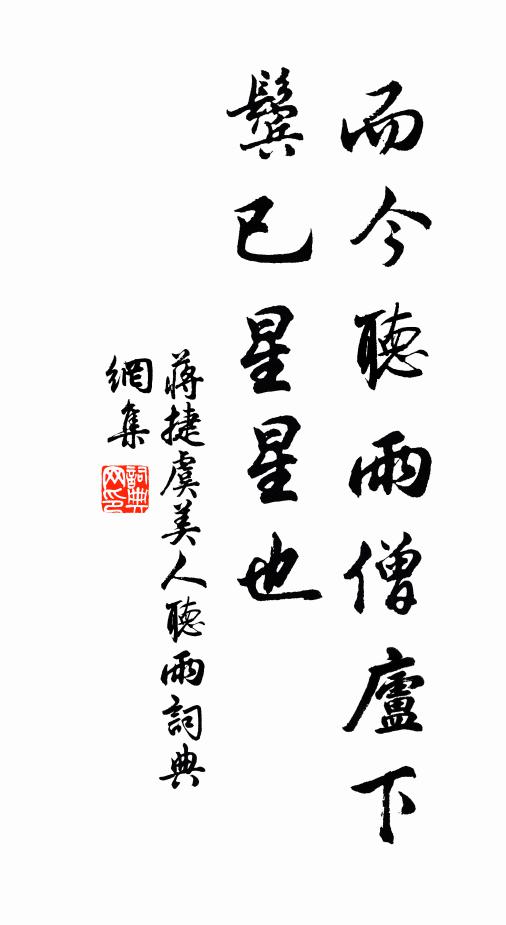 而今聽雨僧廬下
鬢已星星也
蔣捷虞美人聽雨詞典
網集
詞典
网印